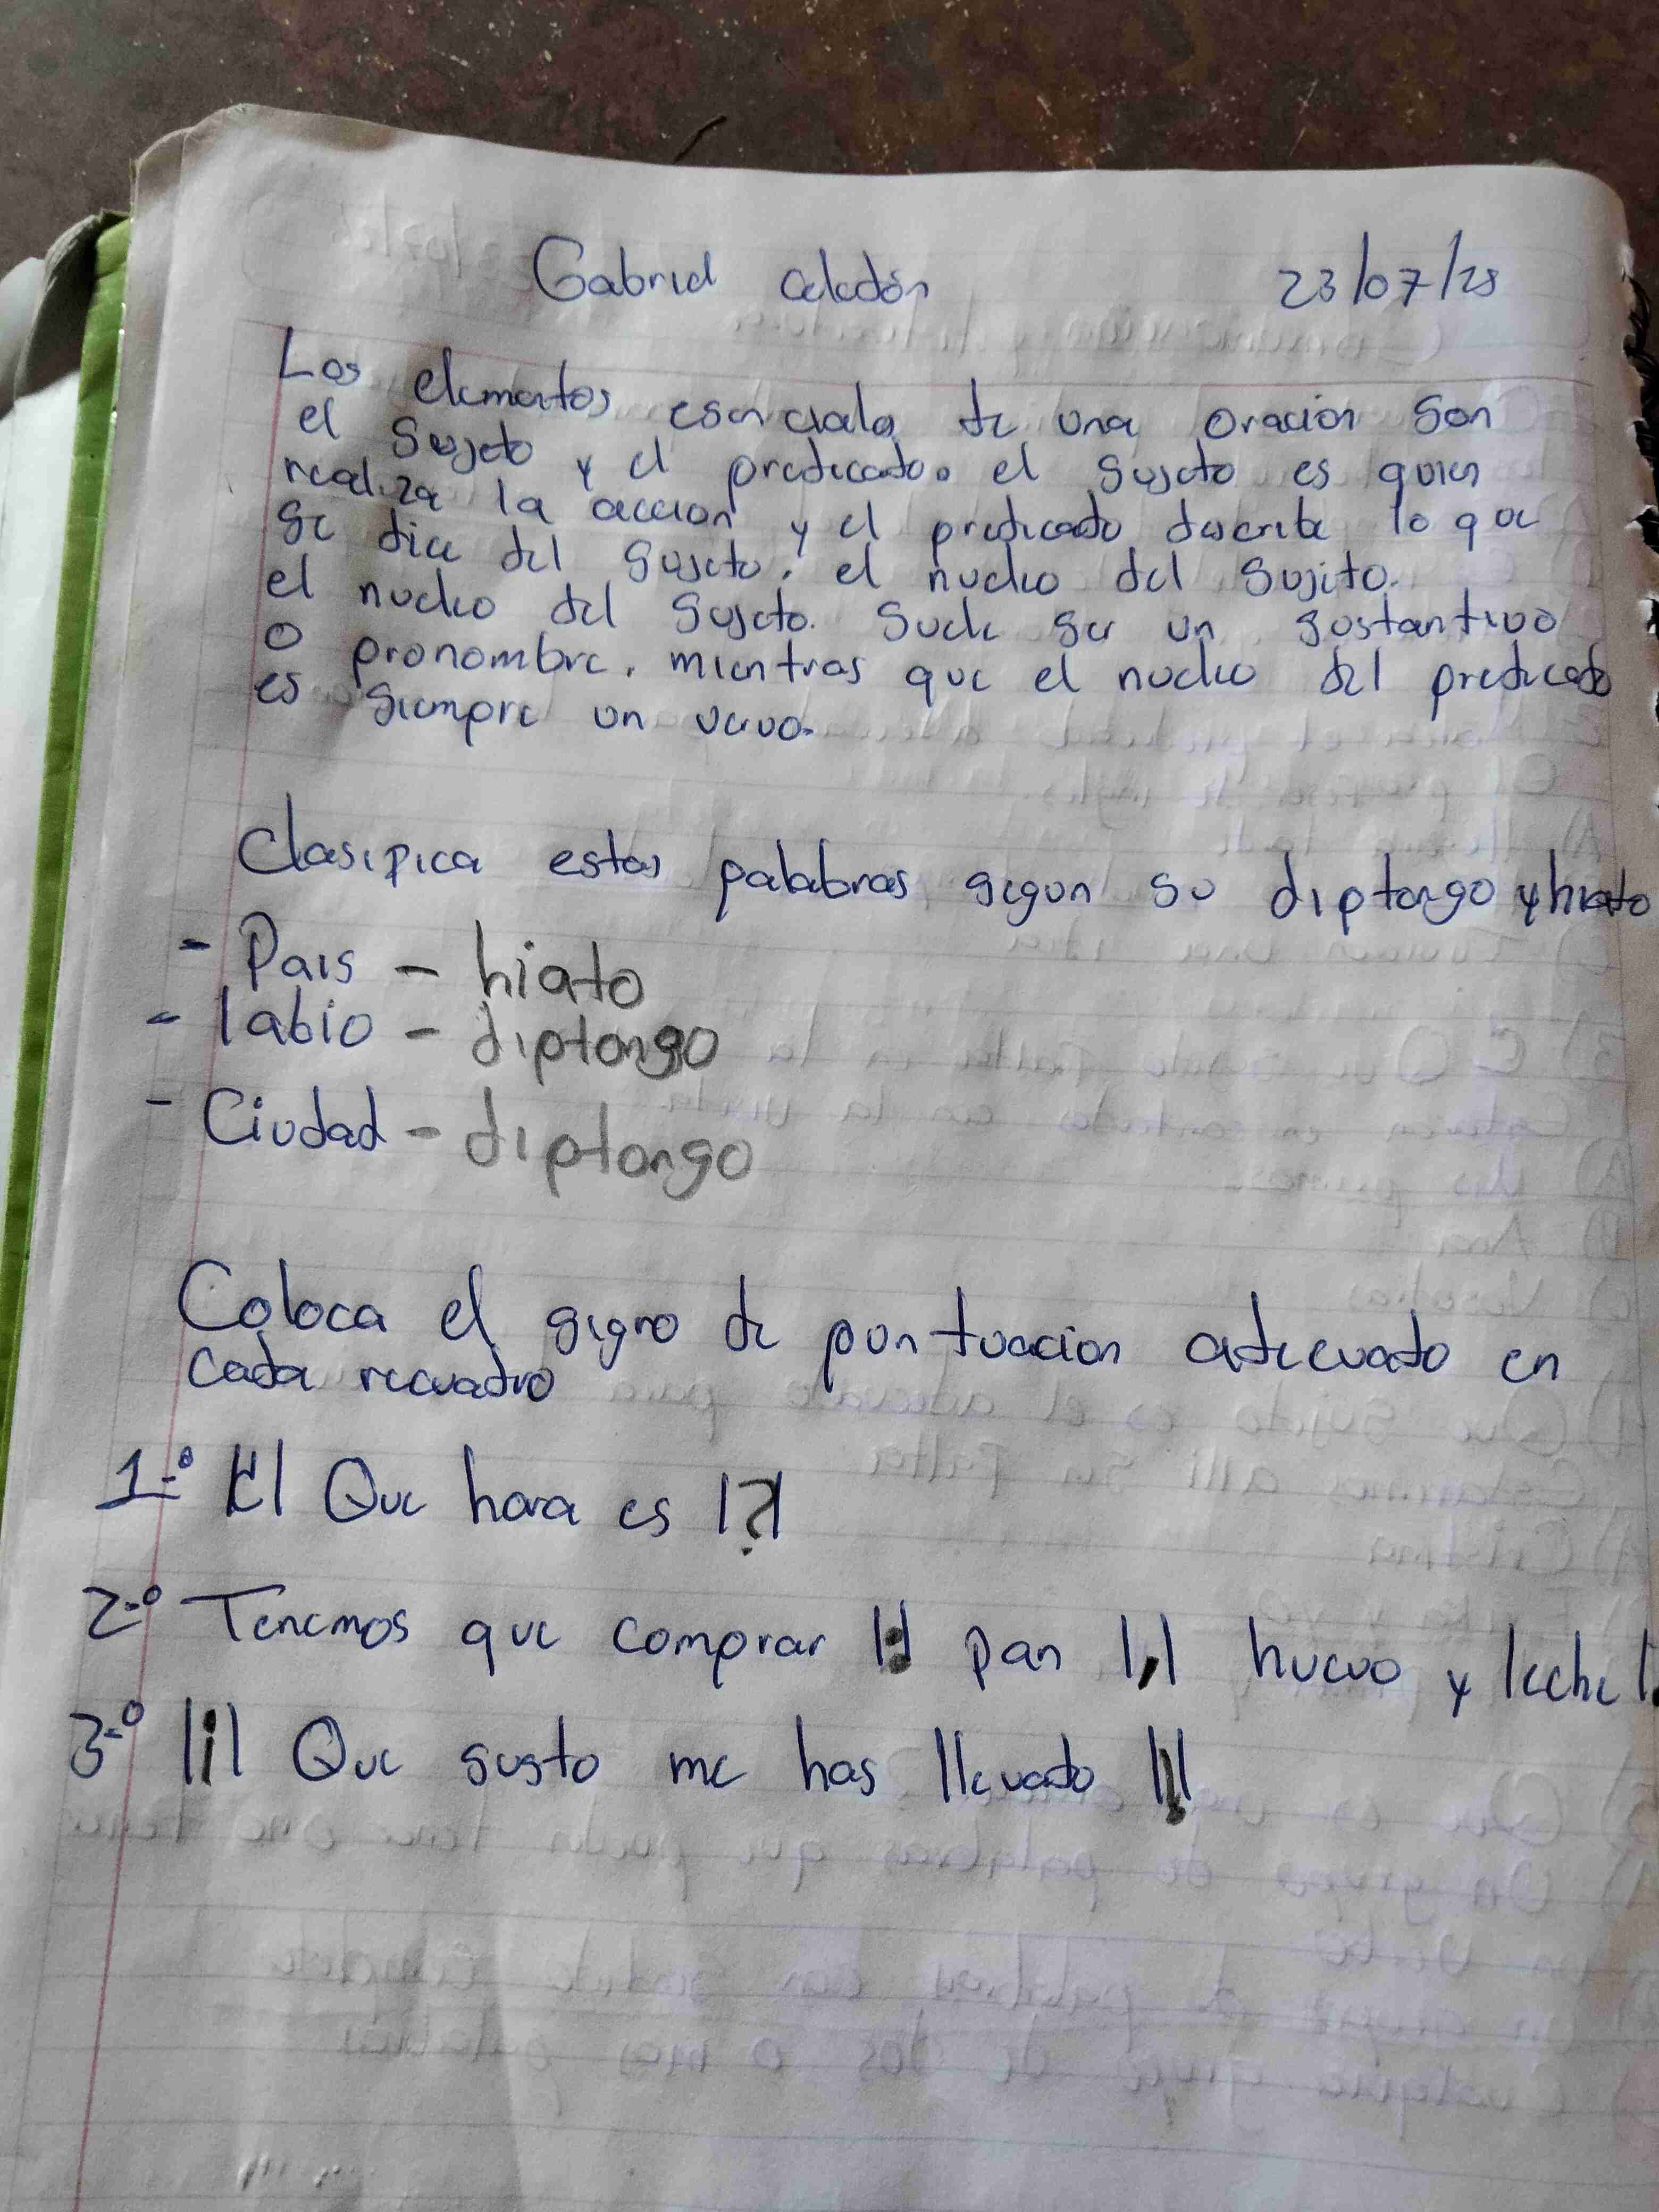 Gabriel Celedón 23/07/25
Los elementos esenciales de una oracion son
el Sujeto y el predicado. el sujeto es quien
realiza la accion y el predicado describe lo que
se dice del sujeto. el nucleo del sujeto.
el nucleo del sujeto. Suele ser un sustantivo
o pronombre. mientras que el nucleo del predicado
es siempre un vervo.
Clasifica estas palabras segun su diptongo y hiato
- Pais - hiato
- labio - diptongo
- Ciudad - diptongo
Coloca el signo de puntuacion adecuado en
cada recuadro
1-º |¿| Que hora es |?|
2-º Tenemos que comprar |:| pan |,| huevo y leche |.
3-º |¡| Que susto me has llevado |!|